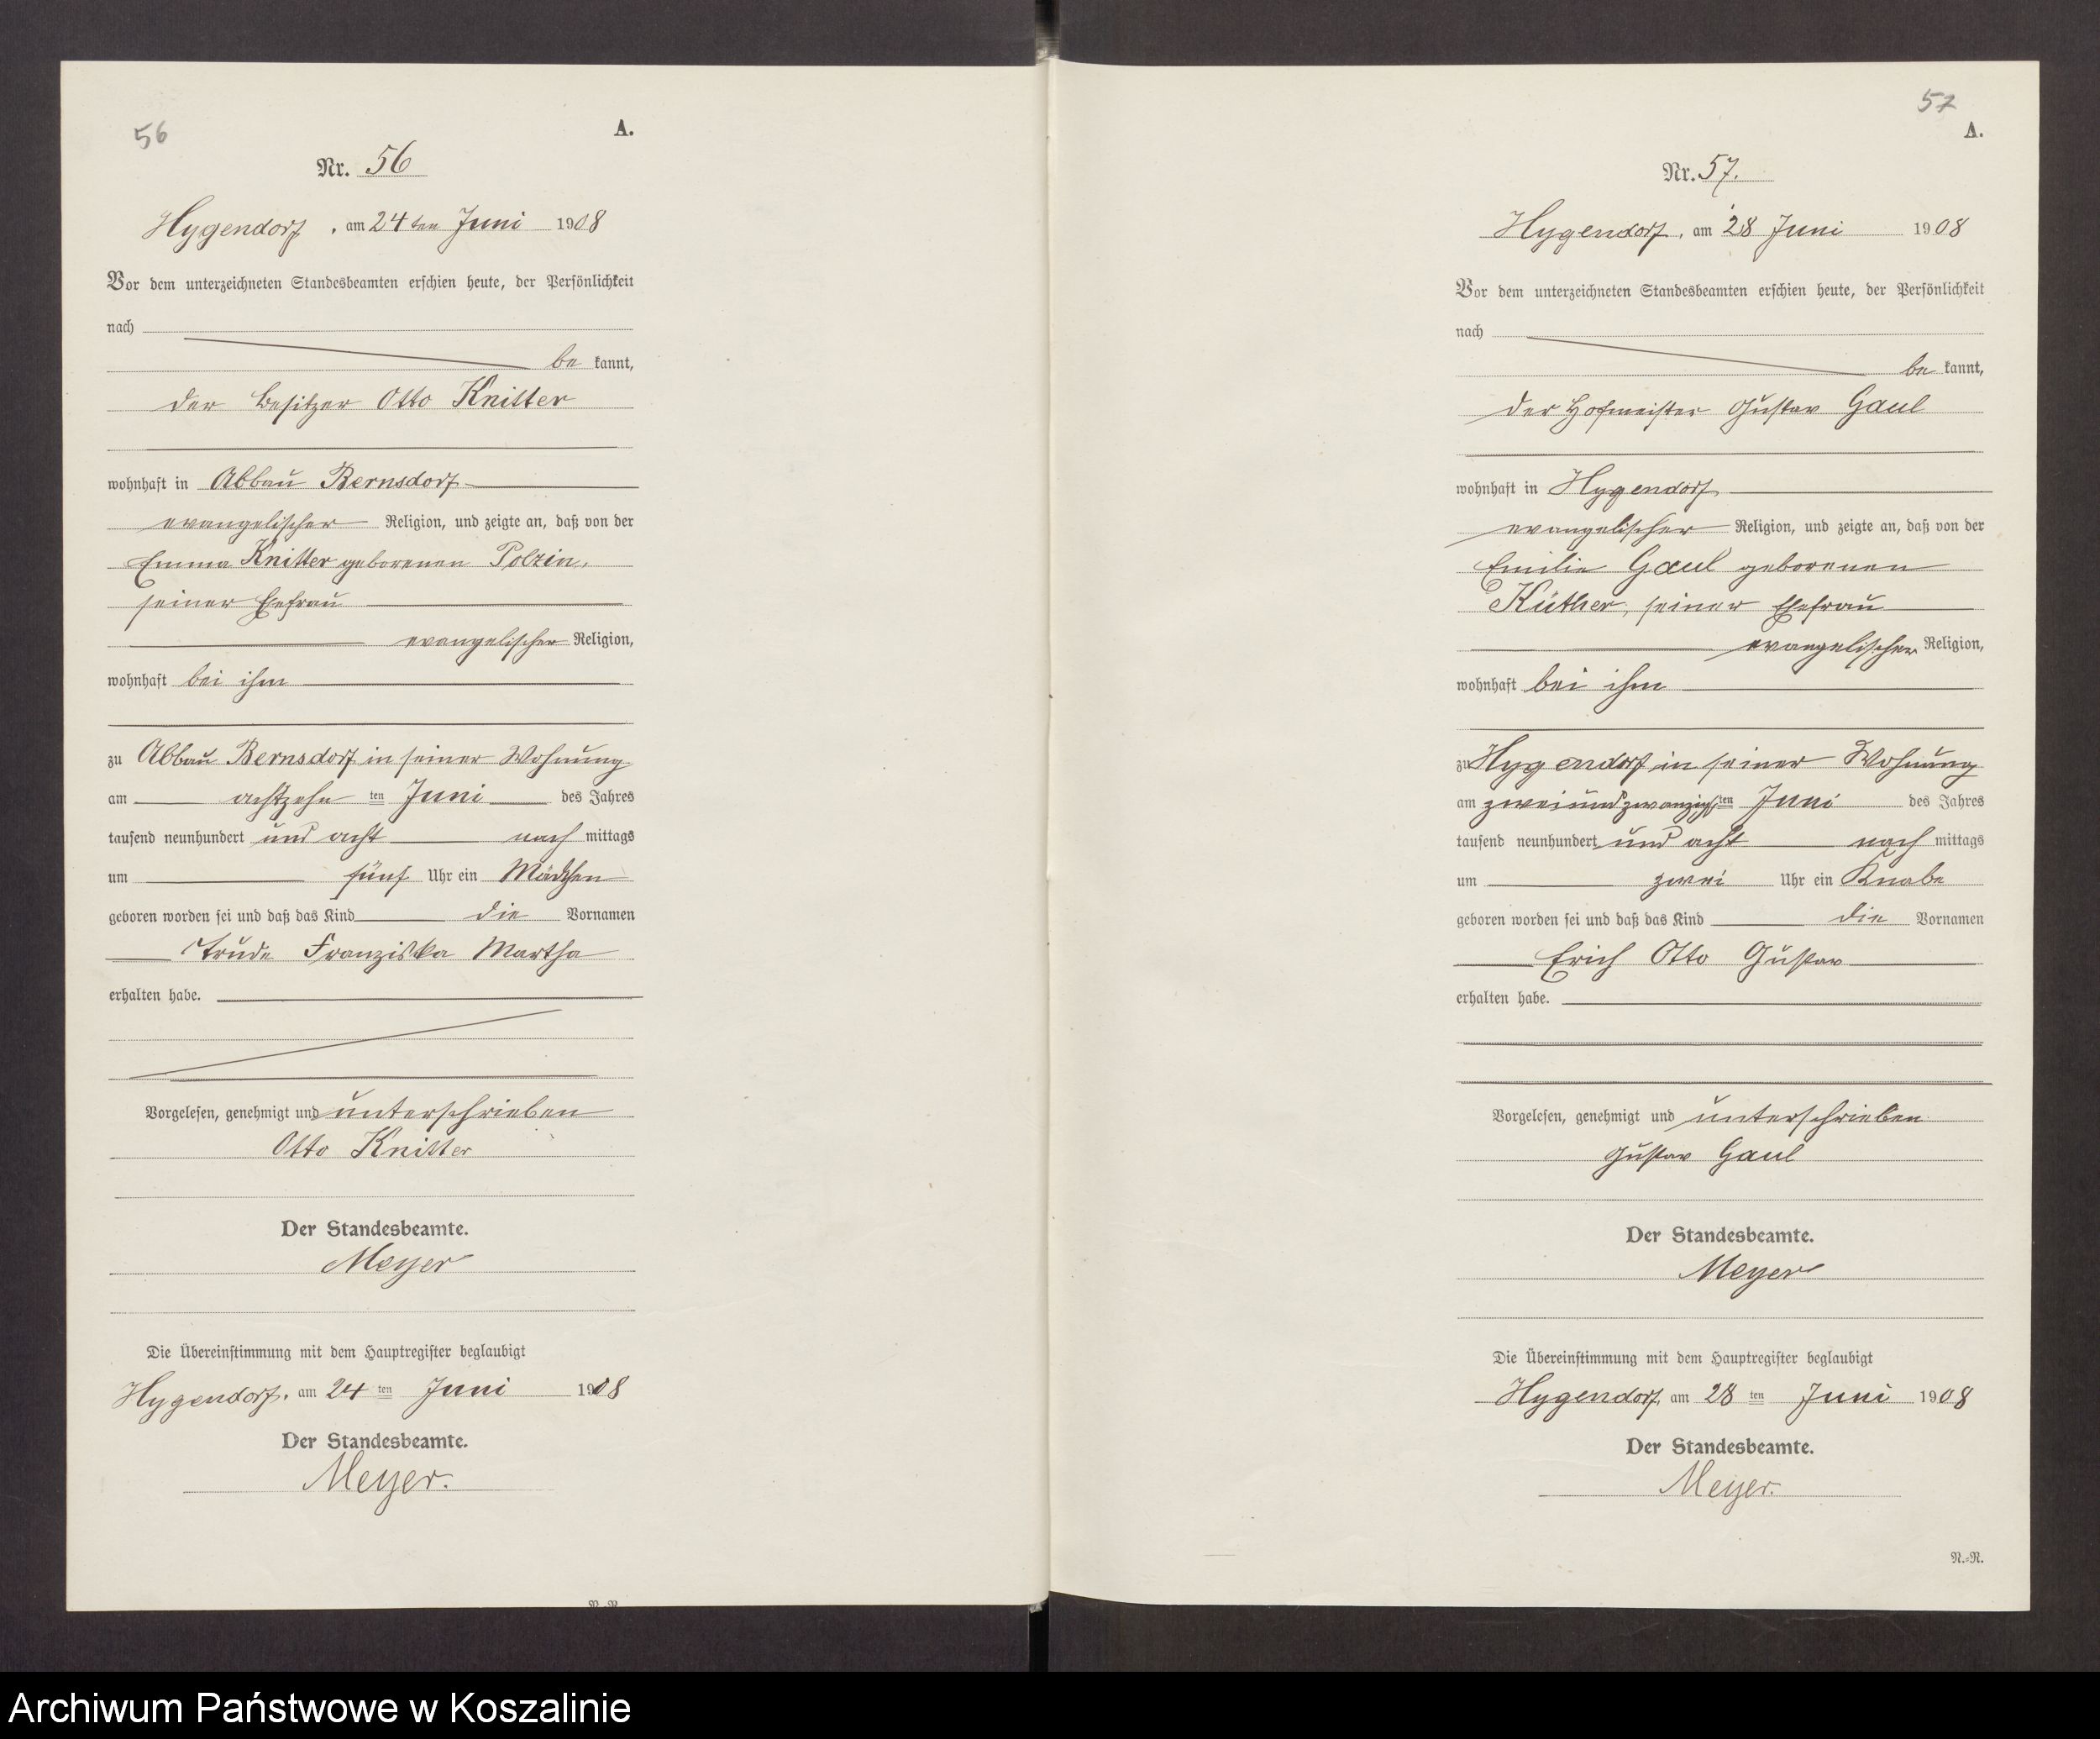 56
A.
Nr. 56
Hygendorf, am 24ten Juni 1908
Vor dem unterzeichneten Standesbeamten erschien heute, der Persönlichkeit
nach
be kannt,
der Besitzer Otto Knitter
wohnhaft in Abbau Bernsdorf
evangelischer Religion, und zeigte an, daß von der
Emma Knitter geborenen Polzin,
seiner Ehefrau
evangelischer Religion,
wohnhaft bei ihm
zu Abbau Bernsdorf in seiner Wohnung
am achtzehn ten Juni des Jahres
tausend neunhundert und acht nach mittags
um fünf Uhr ein Mädchen
geboren worden sei und daß das Kind die Vornamen
Trude Franziska Martha
erhalten habe.
Vorgelesen, genehmigt und unterschrieben
Otto Knitter
Der Standesbeamte.
Meyer
Die Übereinstimmung mit dem Hauptregister beglaubigt
Hygendorf, am 24 ten Juni 1908
Der Standesbeamte.
Meyer.
57
A.
Nr. 57.
Hygendorf, am 28 Juni 1908
Vor dem unterzeichneten Standesbeamten erschien heute, der Persönlichkeit
nach
be kannt,
der Hofmeister Gustav Gaul
wohnhaft in Hygendorf
evangelischer Religion, und zeigte an, daß von der
Emilie Gaul geborenen
Küther, seiner Ehefrau
evangelischer Religion,
wohnhaft bei ihm
zu Hygendorf in seiner Wohnung
am zweiundzwanzigsten Juni des Jahres
tausend neunhundert und acht nach mittags
um zwei Uhr ein Knabe
geboren worden sei und daß das Kind die Vornamen
Erich Otto Gustav
erhalten habe.
Vorgelesen, genehmigt und unterschrieben
Gustav Gaul
Der Standesbeamte.
Meyer
Die Übereinstimmung mit dem Hauptregister beglaubigt
Hygendorf, am 28 ten Juni 1908
Der Standesbeamte.
Meyer.
N.=N.
Archiwum Państwowe w Koszalinie